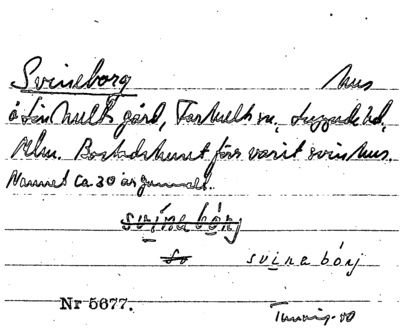 Svineborg hus
å Lönhults gård, Farhults sn, Luggude hd,
Mlm. Bostadshuset förr varit svinhus.
Namnet ca 30 år gammalt.
svinabórj
Sv svinabórj
Nr 5677.